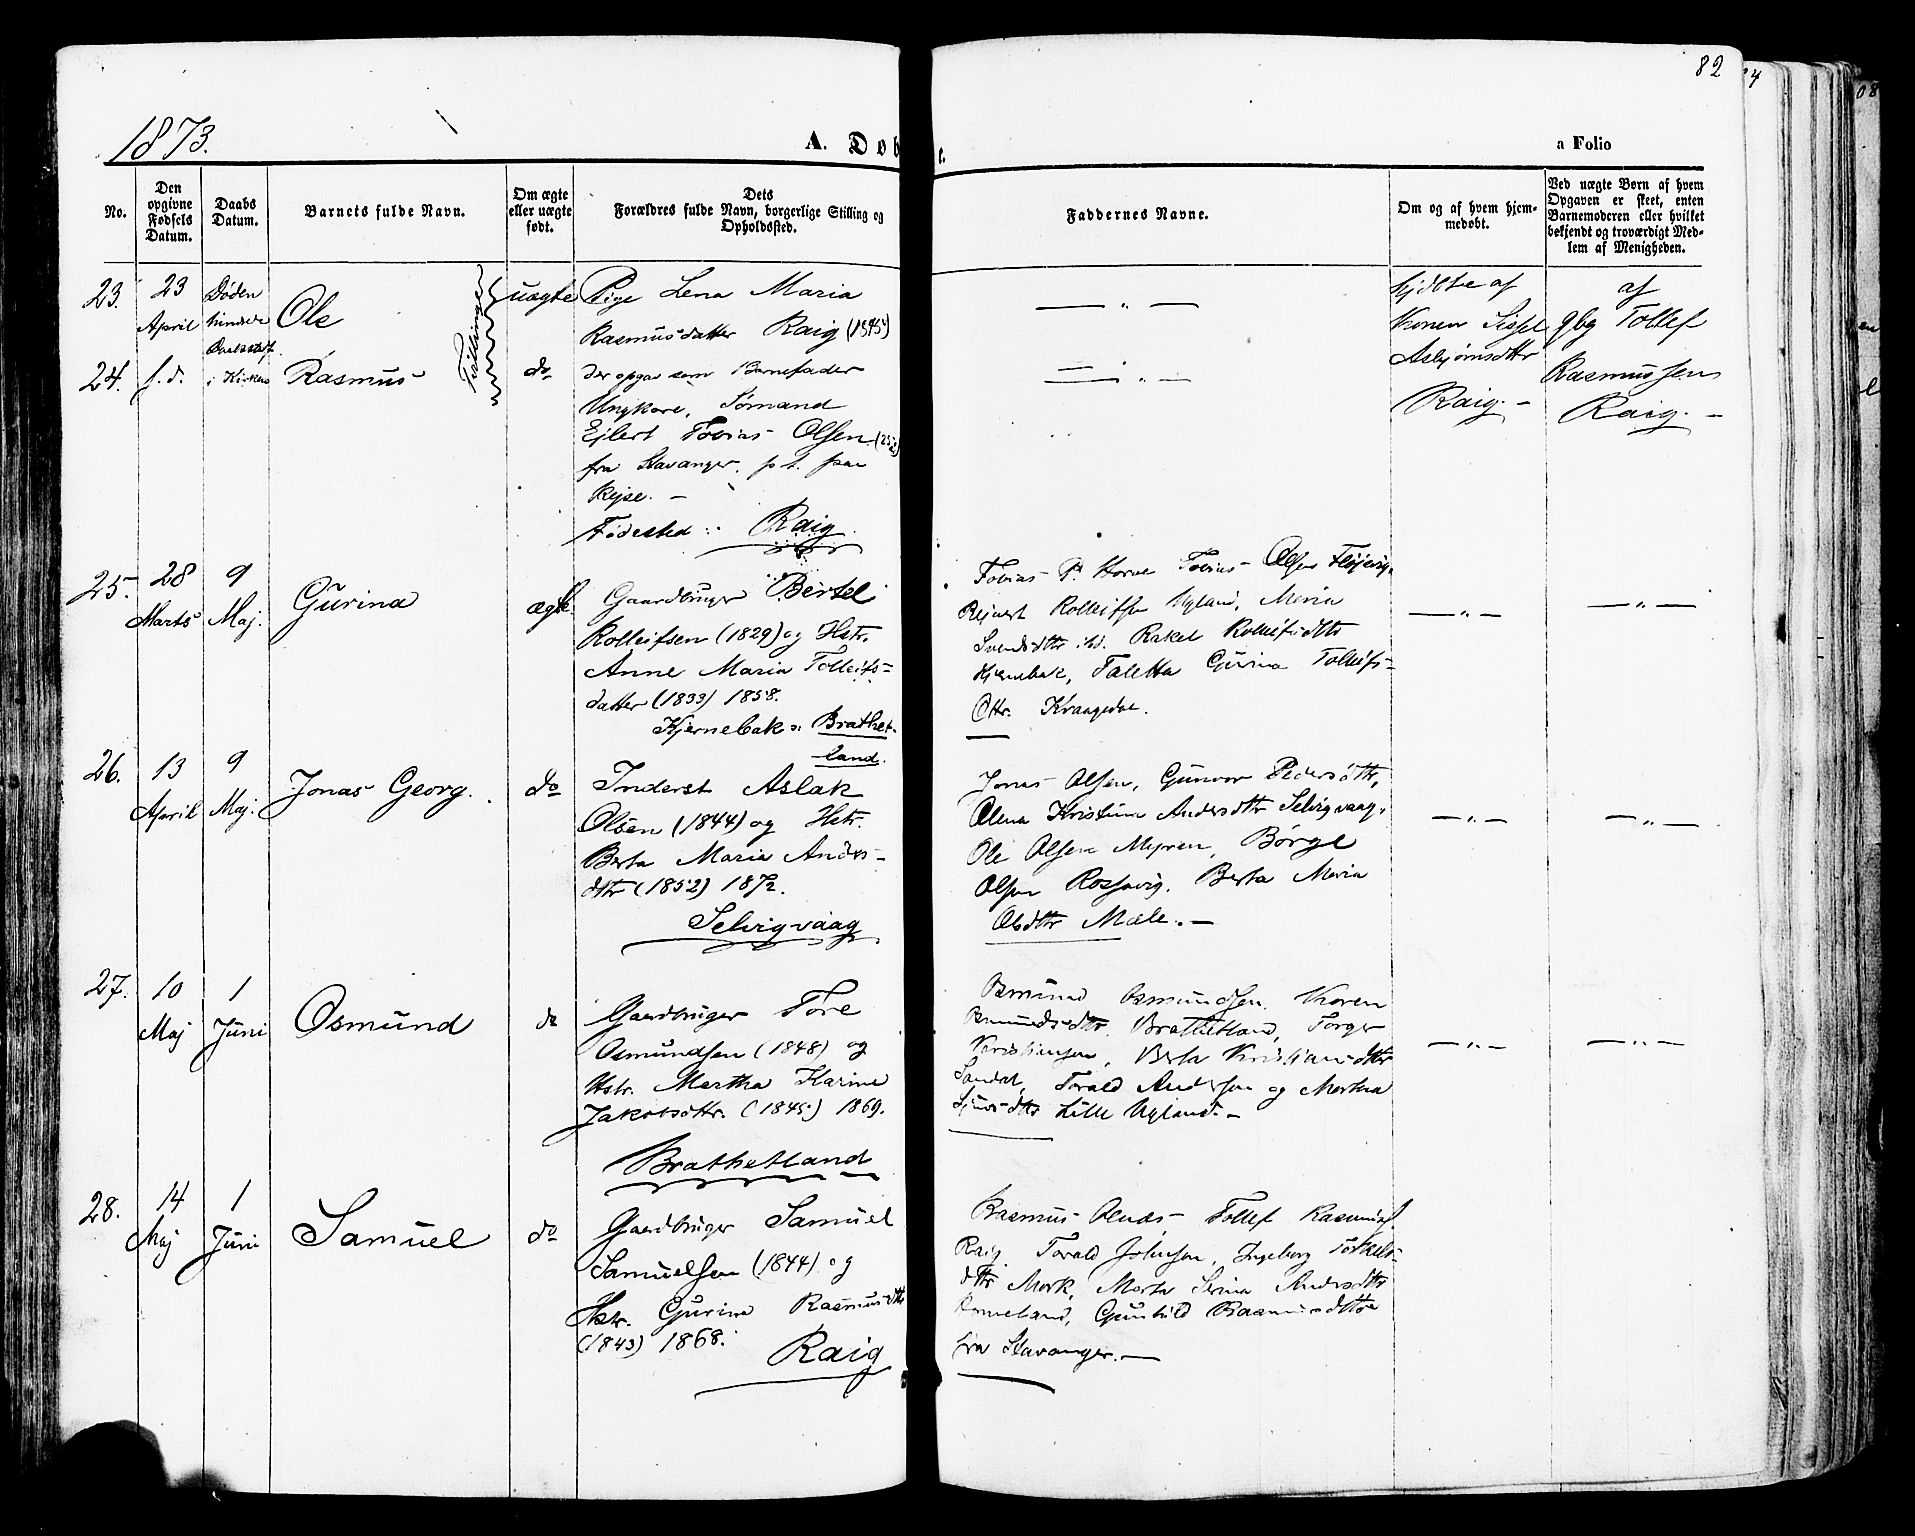 82
1873.
A. Døbte.
a Folio
No.
Den opgivne Fødsels Datum.
Daabs Datum.
Barnets fulde Navn.
Om ægte eller uægte født.
Dets Forældres fulde Navn, borgerlige Stilling og Opholdssted.
Faddernes Navne.
Om og af hvem hjemmedøbt.
Ved uægte Børn af hvem Opgaven er skeet, enten Barnemoderen eller hvilket bekjendt og troværdigt Medlem af Menigheden.
23.
23 April
Døden hindrede
Ole
Tvillinger
uægte
Pige Lena Maria
Rasmusdatter Raig (1845)
— " —
Hjdbte af
Konen Sissel
Asbjørnsdttr
Raig. —
af
gbg Tollef
Rasmussen
Raig. —
24.
s. d.
i Kirken
Rasmus
do
der opgav som Barnefader
Ungkare, Sømand
Ejlert Tobias Olsen
fra Stavanger, p. t. paa
Rejse. —
Fødested :: Raig
— " —
25.
28 Marts
9 Maj.
Gurina
ægte
Gaardbruger Bertel
Rolleifsen (1829) og Hstr.
Anne Maria Tolleifs-
datter (1833) 1858.
Kjernebak :: Brathet-
land.
Tobias P. Horve Tobias Olsen Fløjevig,
Rejert Rolleifsen Ugland, Maria
Svendsdttr ibd. Rakel Rolleifsdttr
Hjernebak, Taletta Gurina Tolleifs-
dttr. Kraagedal.
— " —
— " —
26.
13 April
9 Maj.
Jonas Georg.
do
Inderst Aslak
Olsen (1844) og Hstr.
Berta Maria Anders-
dttr (1852) 1872.
Selvigvaag
Jonas Olsen, Gunvor Pedersdttr,
Olena Kristine Andersdttr Selvigvaag,
Ole Olsen Myren, Børge
Olsen Rossavig, Berta Maria
Olsdttr Mæle. —
— " —
— " —
27.
10 Maj
1 Juni
Osmund
do
Gaardbruger Tore
Osmundsen (1848) og
Hstr. Martha Karine
Jakobsdttr. (1845) 1869.
Brathetland
Osmund Osmundsen, Karen
Osmundsdttr. Brathetland, Torger
Kristiansen, Berta Kristiansdttr
Sandal, Torald Andersen og Martha
Sjursdttr Lille Ugland. —
— " —
— " —
28.
14 Maj
1 Juni
Samuel
do
Gaardbruger Samuel
Samuelsen (1844) og
Hstr. Gurine Rasmusdttr
(1843) 1868.
Raig
Rasmus Tollef
Raig Torald Johnsen, Ingeborg
dttr Mork, Marta Serina Andersdttr
Gunhild Rasmusdttr
fra Stavanger. —